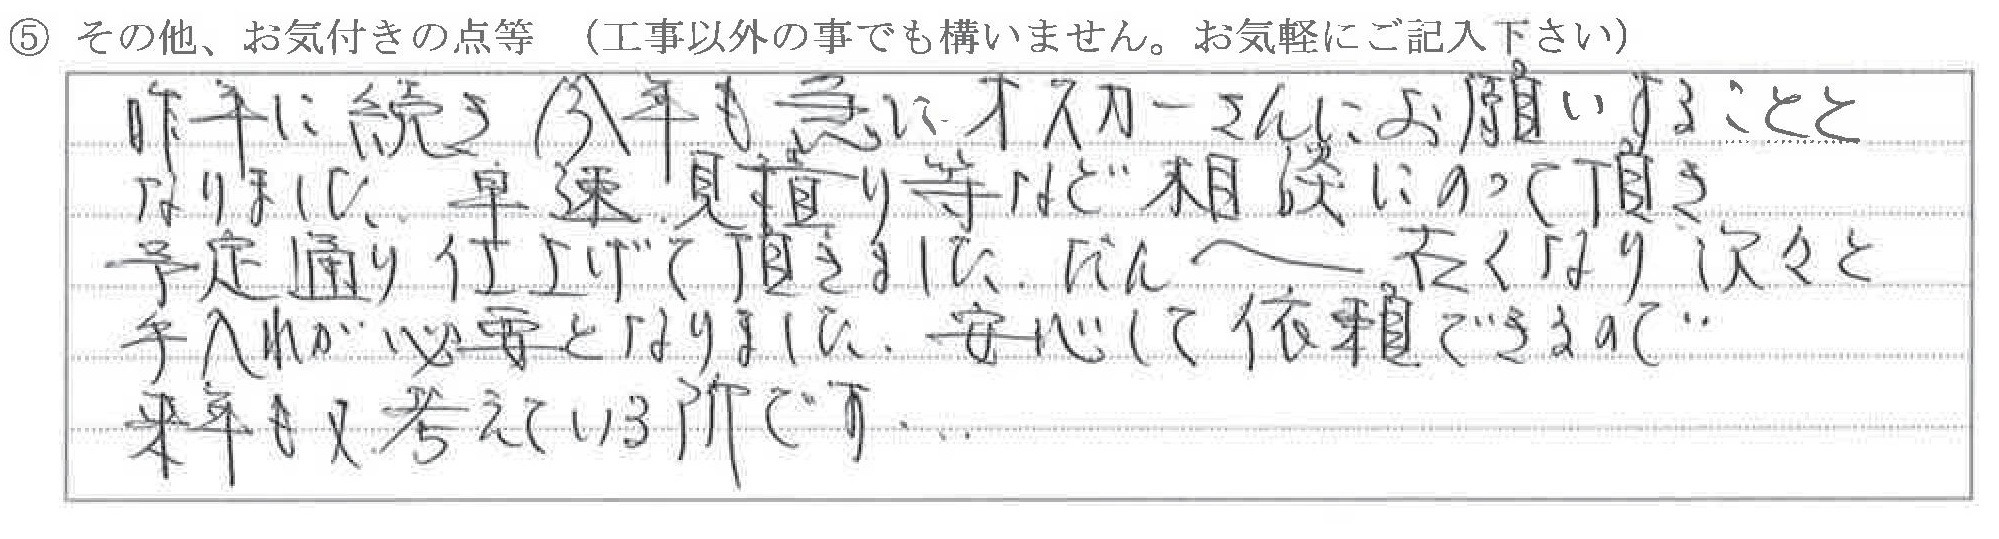 ⑤ その他、お気付きの点等 （工事以外の事でも構いません。お気軽にご記入下さい）
昨年に続き今年も急にオスカーさんにお願いすることと
なりました。早速見積り等など相談にのって頂き
予定通り仕上げて頂きました。だん〱古くなり次々と
手入れが必要となりました。安心して依頼できるので‥
来年も又考えている所です...